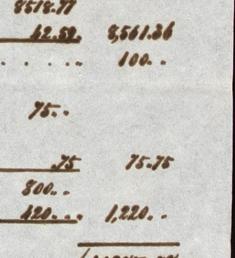 8518.77
42.59. 8,561.36
. . . . . 100..
75..
.75 75.75
800..
420... 1,220..